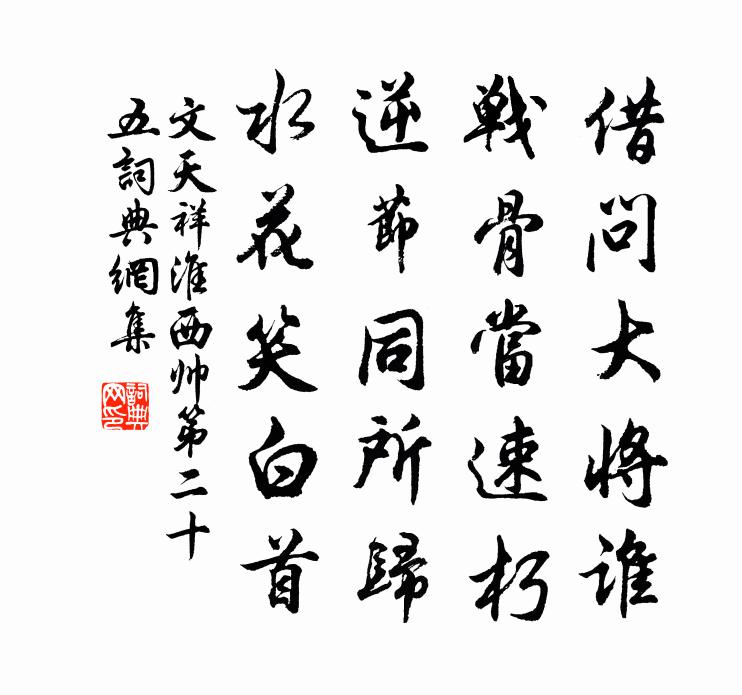 借問大將誰
戰骨當速朽
逆節同所歸
水花笑白首
文天祥淮西帅第二十
五詞典網集
詞典
网印